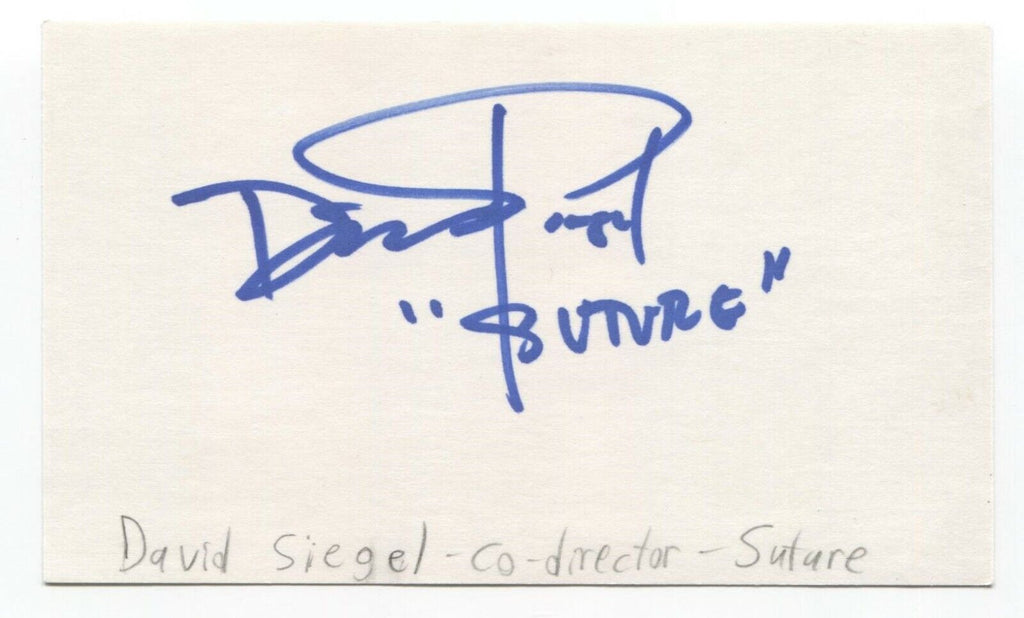 David Siegel
"SUTURE"
David Siegel - Co-director - Suture